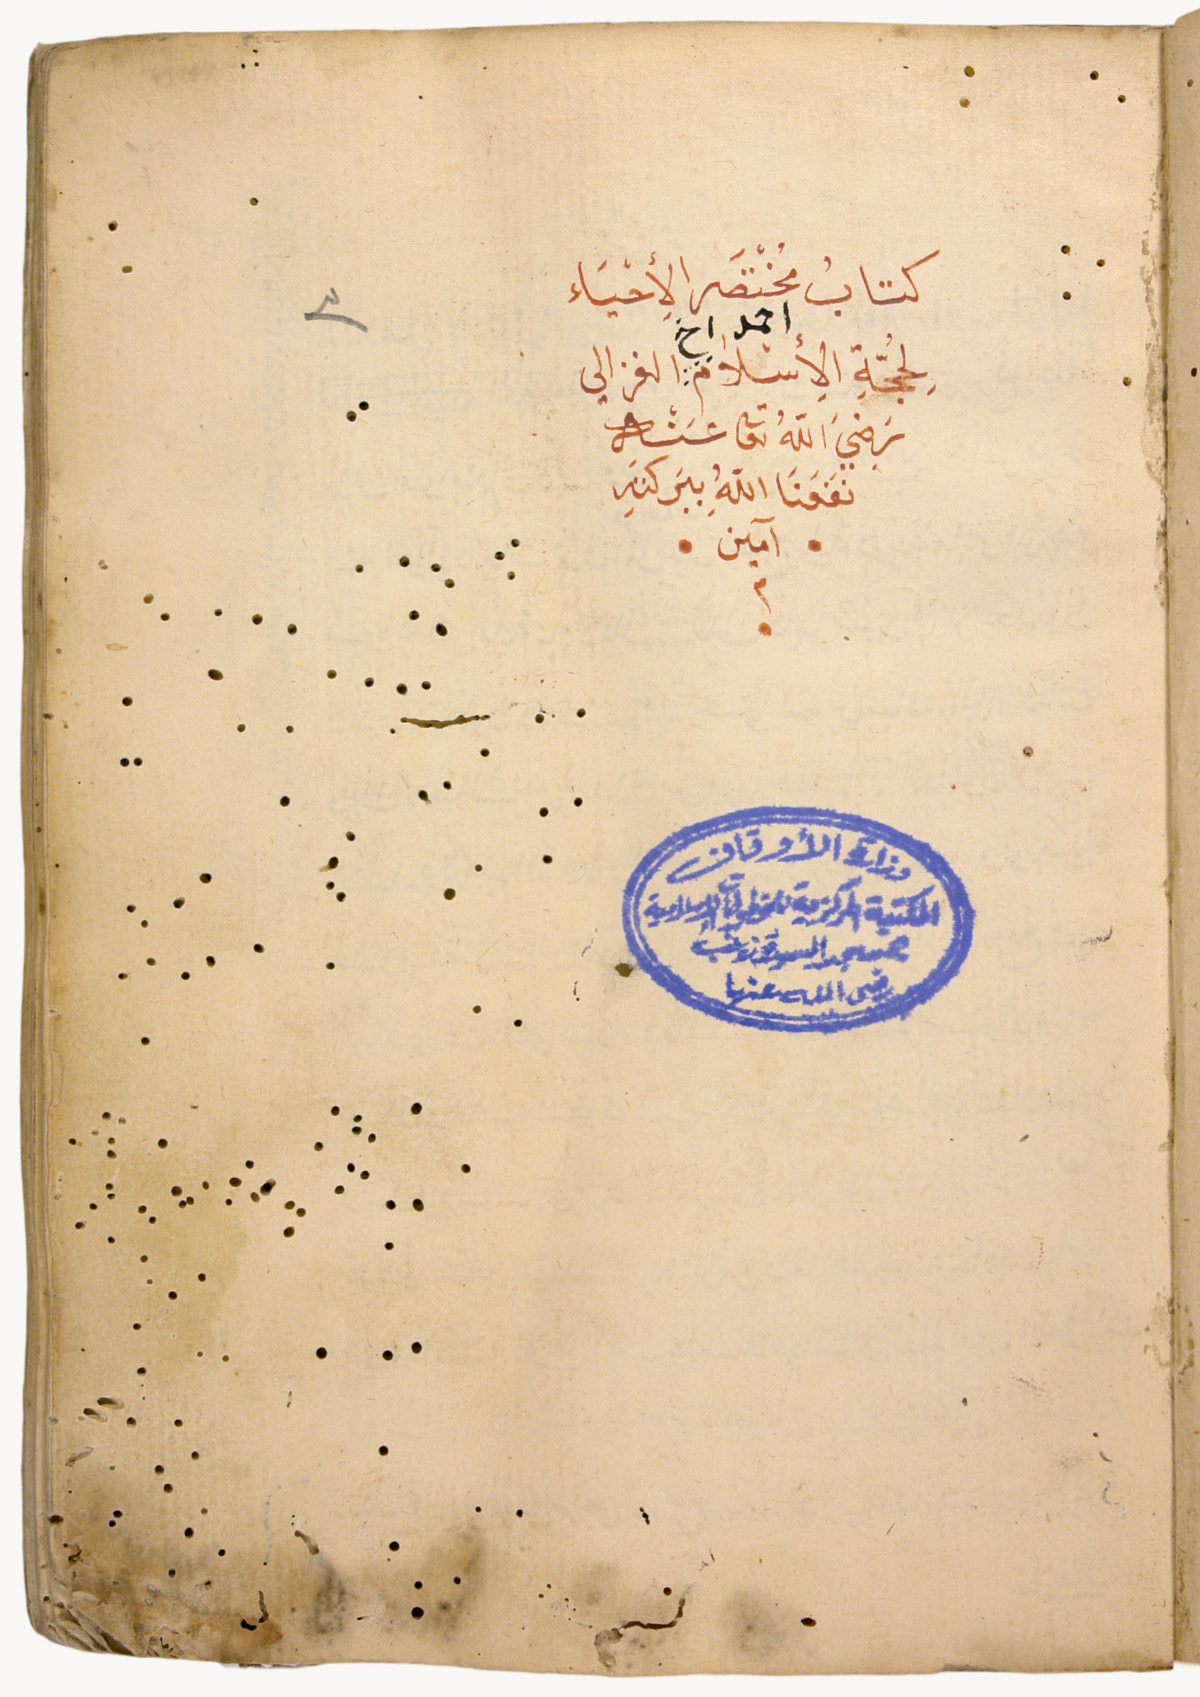 كتابُ مُخْتَصَر الإِحْيَاء
احمد اخ
لِحُجَّةِ الإِسْلَام الغزالي
رَضِيَ اللّٰهُ تعا عَنْهُ
نَفَعَنَا اللّٰهُ بِبَركتِهِ
آمين
م
وزارة الأوقاف
المكتبة المركزية للمخطوطات الإسلامية
بمسجد السيدة زينب
رضى الله عنها